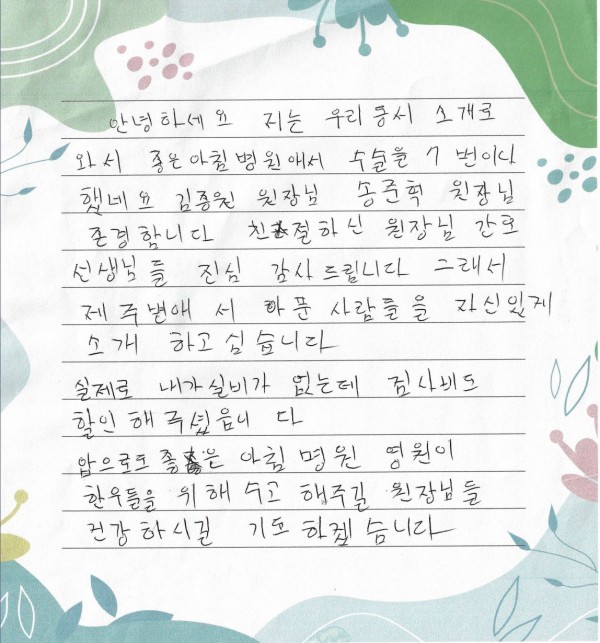 안녕하세요 저는 우리 동서 소개로
와서 좋은아침병원애서 수술을 7번이나
했네요 김종원 원장님 송준혁 원장님
존경합니다 친절하신 원장님 간호
선생님들 진심 감사드립니다 그래서
제 주별애서 아푼 사람들을 자신있게
소개 하고 십습니다
실제로 내가 실비가 없는데 검사비도
할인해주셨읍니다
앞으로도 좋은아침병원 영원이
환우들을 위해 수고 해주길 원장님들
건강하시길 기도하겠습니다